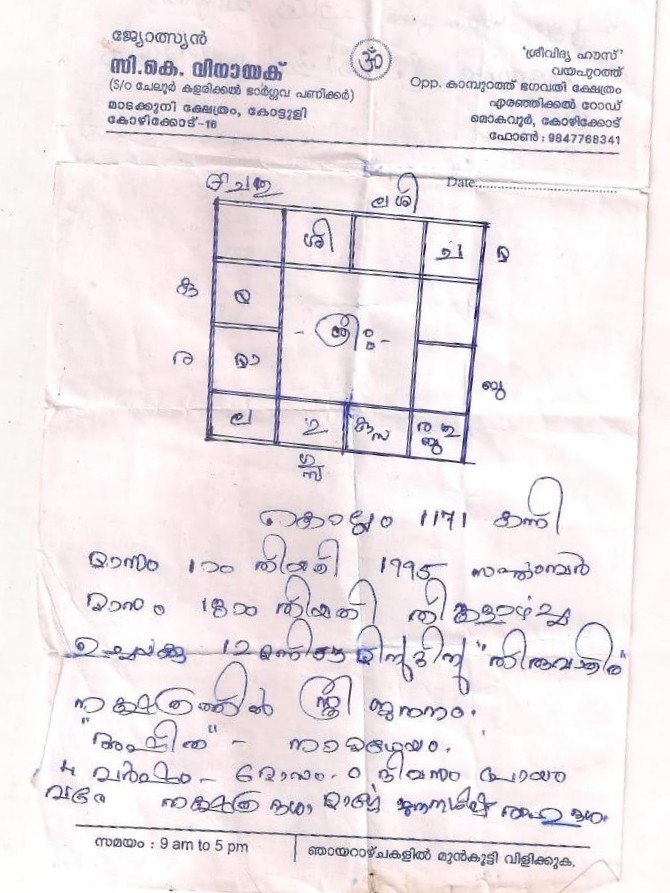 ജ്യോത്സ്യൻ
സി.കെ. വിനായക്
(S/o ചേലൂർ കളരിക്കൽ ഭാർഗ്ഗവ പണിക്കർ)
മാടക്കുനി ക്ഷേത്രം, കോട്ടൂളി
കോഴിക്കോട്-16
ॐ
'ശ്രീവിദ്യ ഹൗസ്'
വയപുറത്ത്
Opp. കാമ്പുറത്ത് ഭഗവതി ക്ഷേത്രം
എരഞ്ഞിക്കൽ റോഡ്
മൊകവൂർ, കോഴിക്കോട്
ഫോൺ : 9847768341
Date
ല ശി
ശി ച മ
കു മ
ര മാ
ബു
ല
കൊല്ലം 1171 കന്നി
മാസം തിയതി 1995 സപ്തംബർ
മാസം 18ാം തിയതി തിങ്കളാഴ്ച
ഉച്ചയ്ക്കു 12 മണി മിനുട്ടിന് "തിരുവാതിര"
നക്ഷത്രത്തിൽ സ്ത്രീ ജനനം.
നാമധേയം.
4 വർഷം മാസം 0 ദിവസം പ്രായം
വരെ നക്ഷത്ര ദശാ
സമയം : 9 am to 5 pm
ഞായറാഴ്ചകളിൽ മുൻകൂട്ടി വിളിക്കുക.